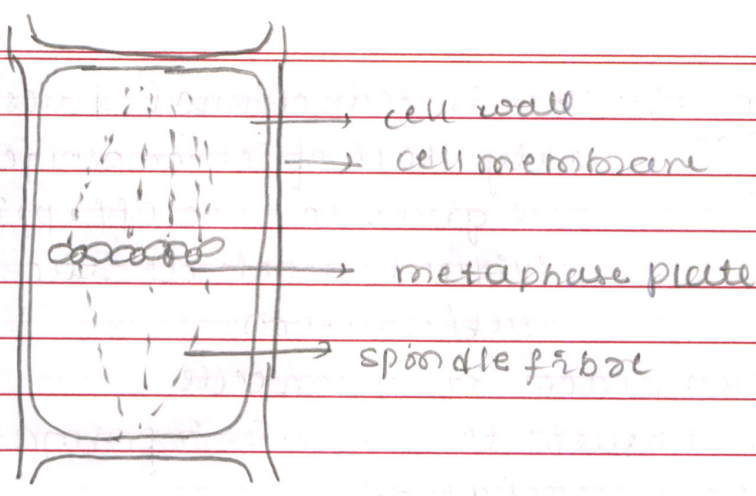 cell wall
cell membrane
metaphase plate
spindle fibre